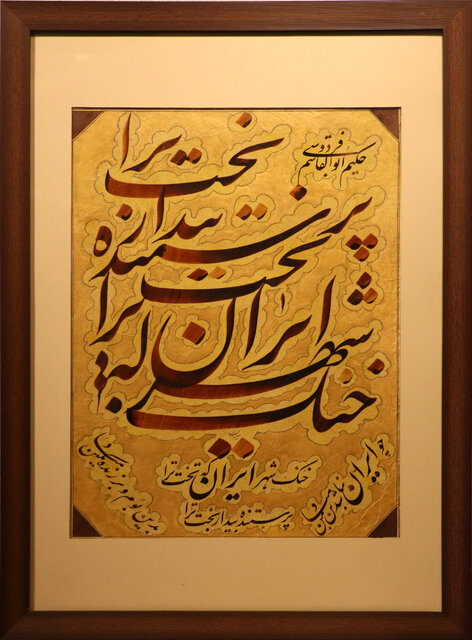 حکیم ابوالقاسم فردوسی
خنک شهر ایران که تخت ترا
پرستنده بیدار بخت ترا
خنک شهر ایران که تخت ترا
پرستنده بیدار بخت ترا
چو ایران نباشد تن من مباد
بدین بوم و بر زنده یک تن مباد